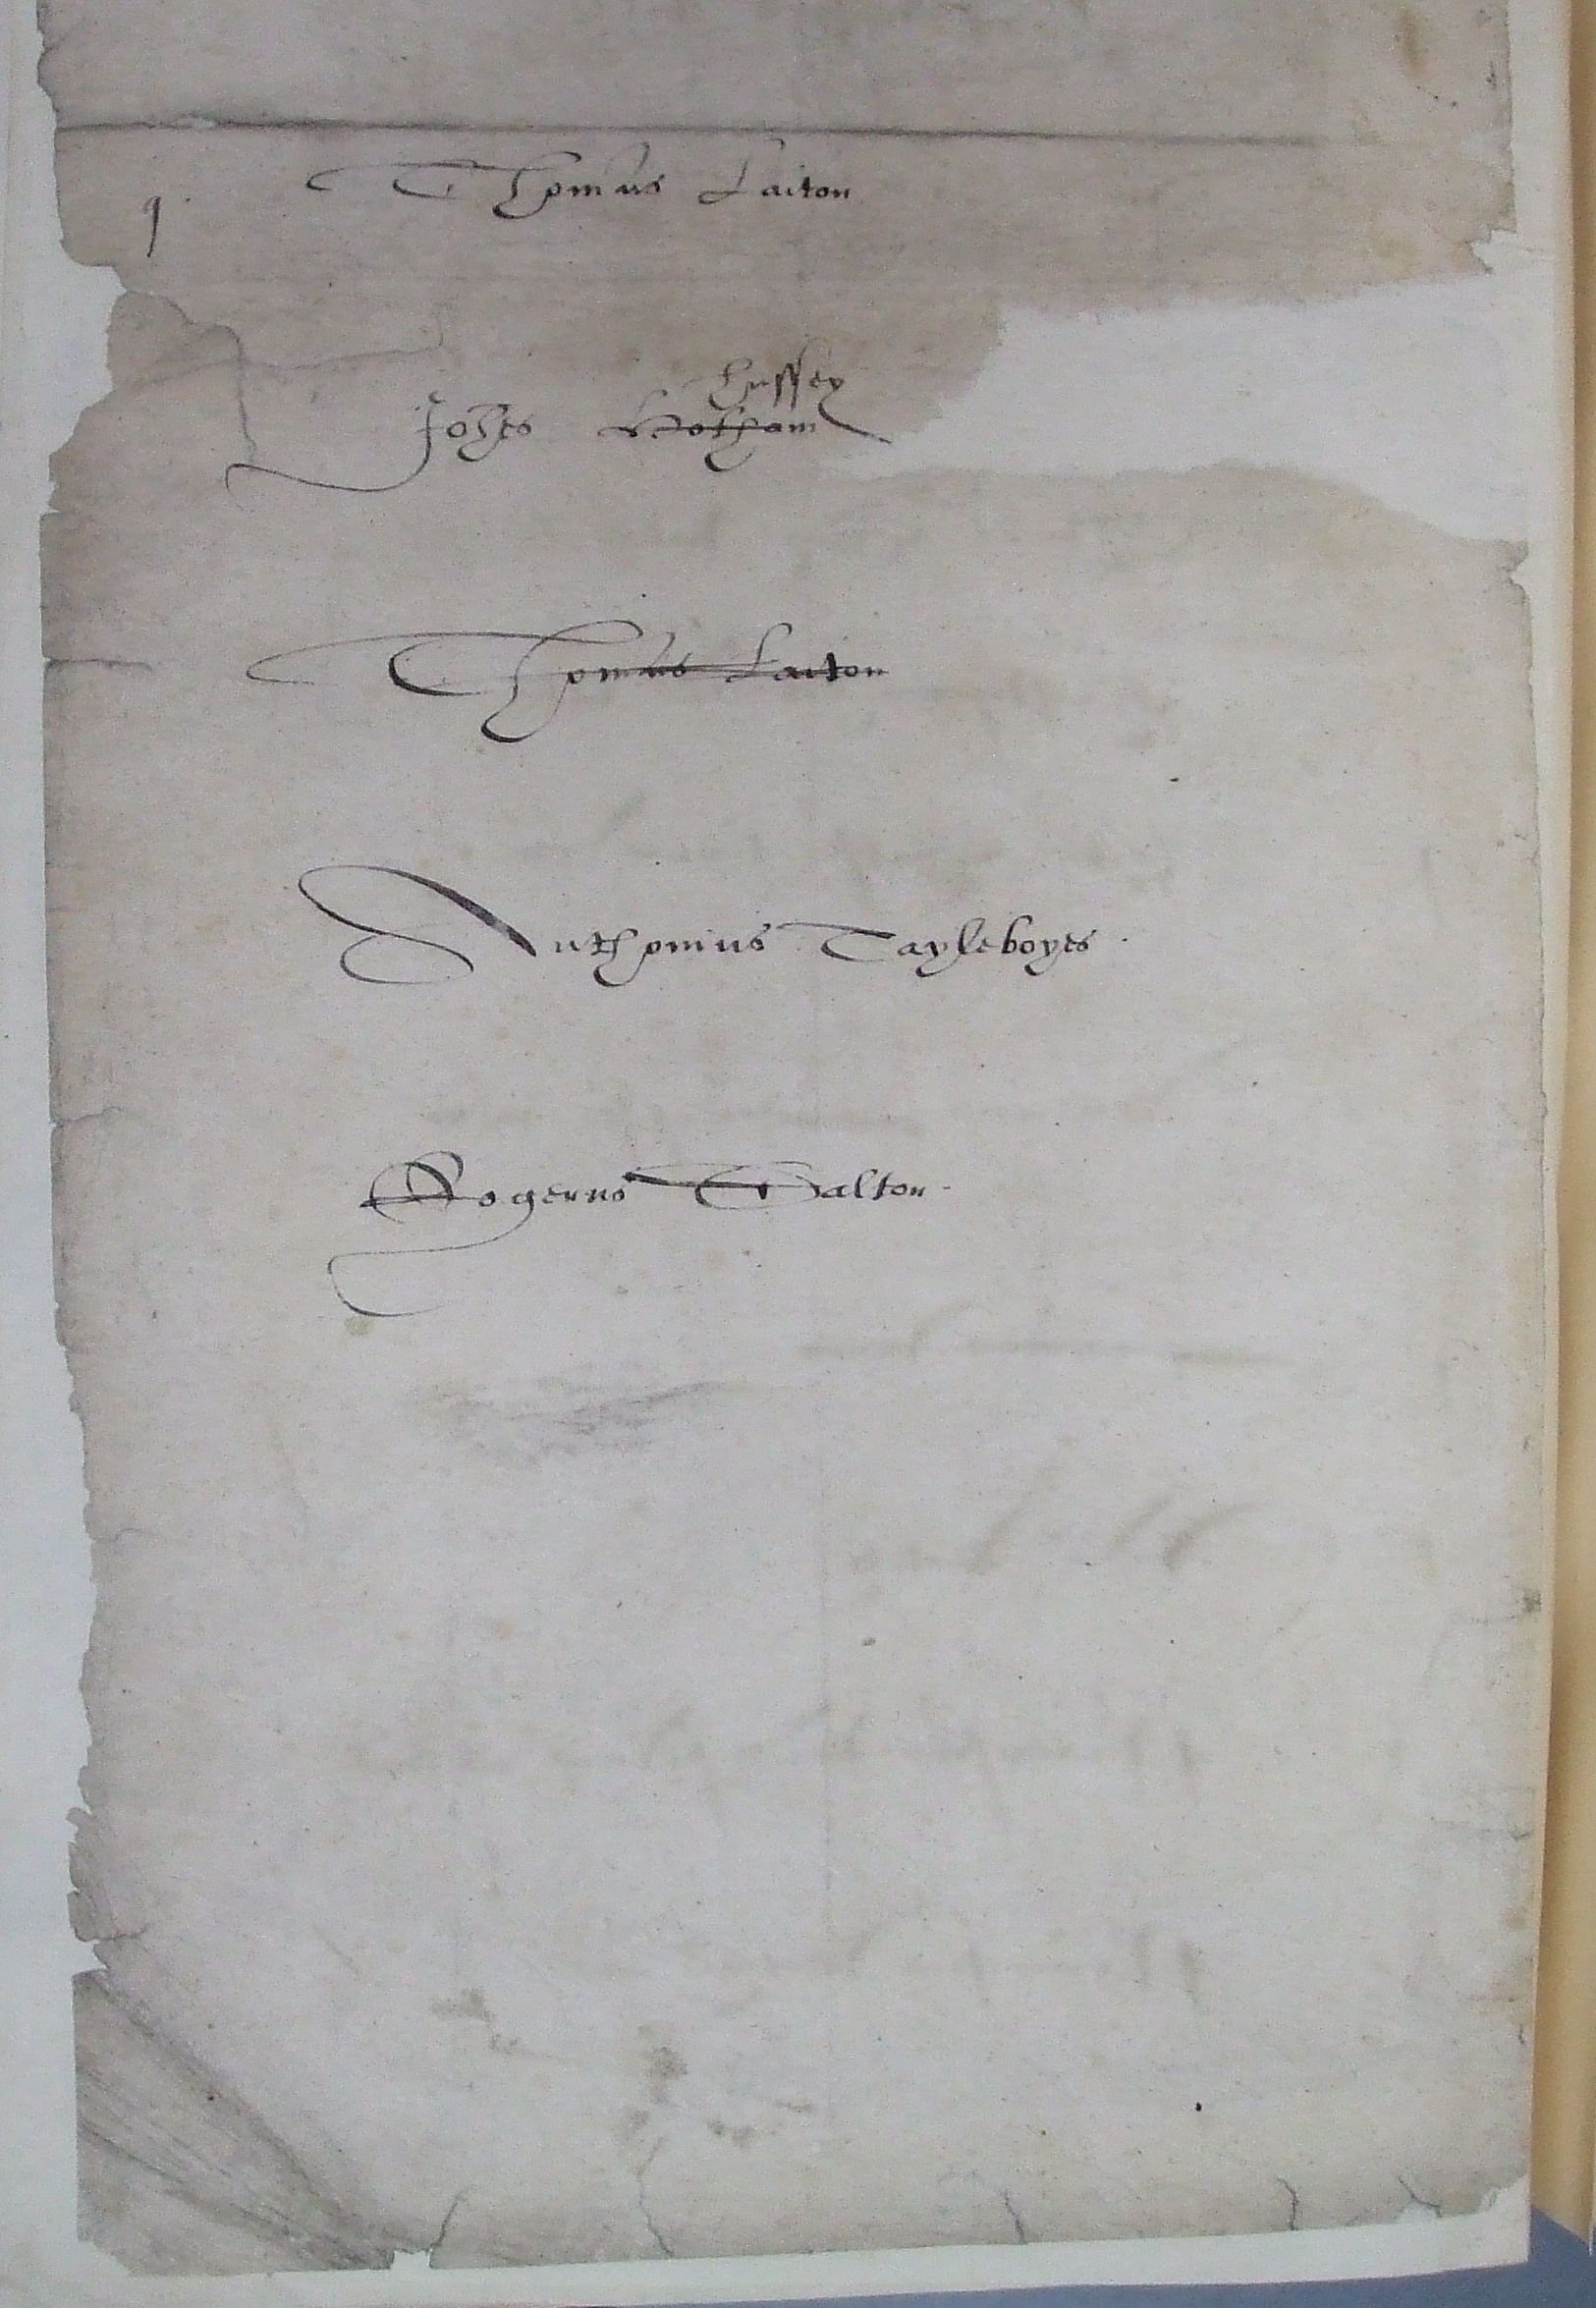 9.
Thomas Laiton
Hussey
Johes Hotham
Thomas Laiton
Anthonius Tayleboyes.
Rogerus Dalton.